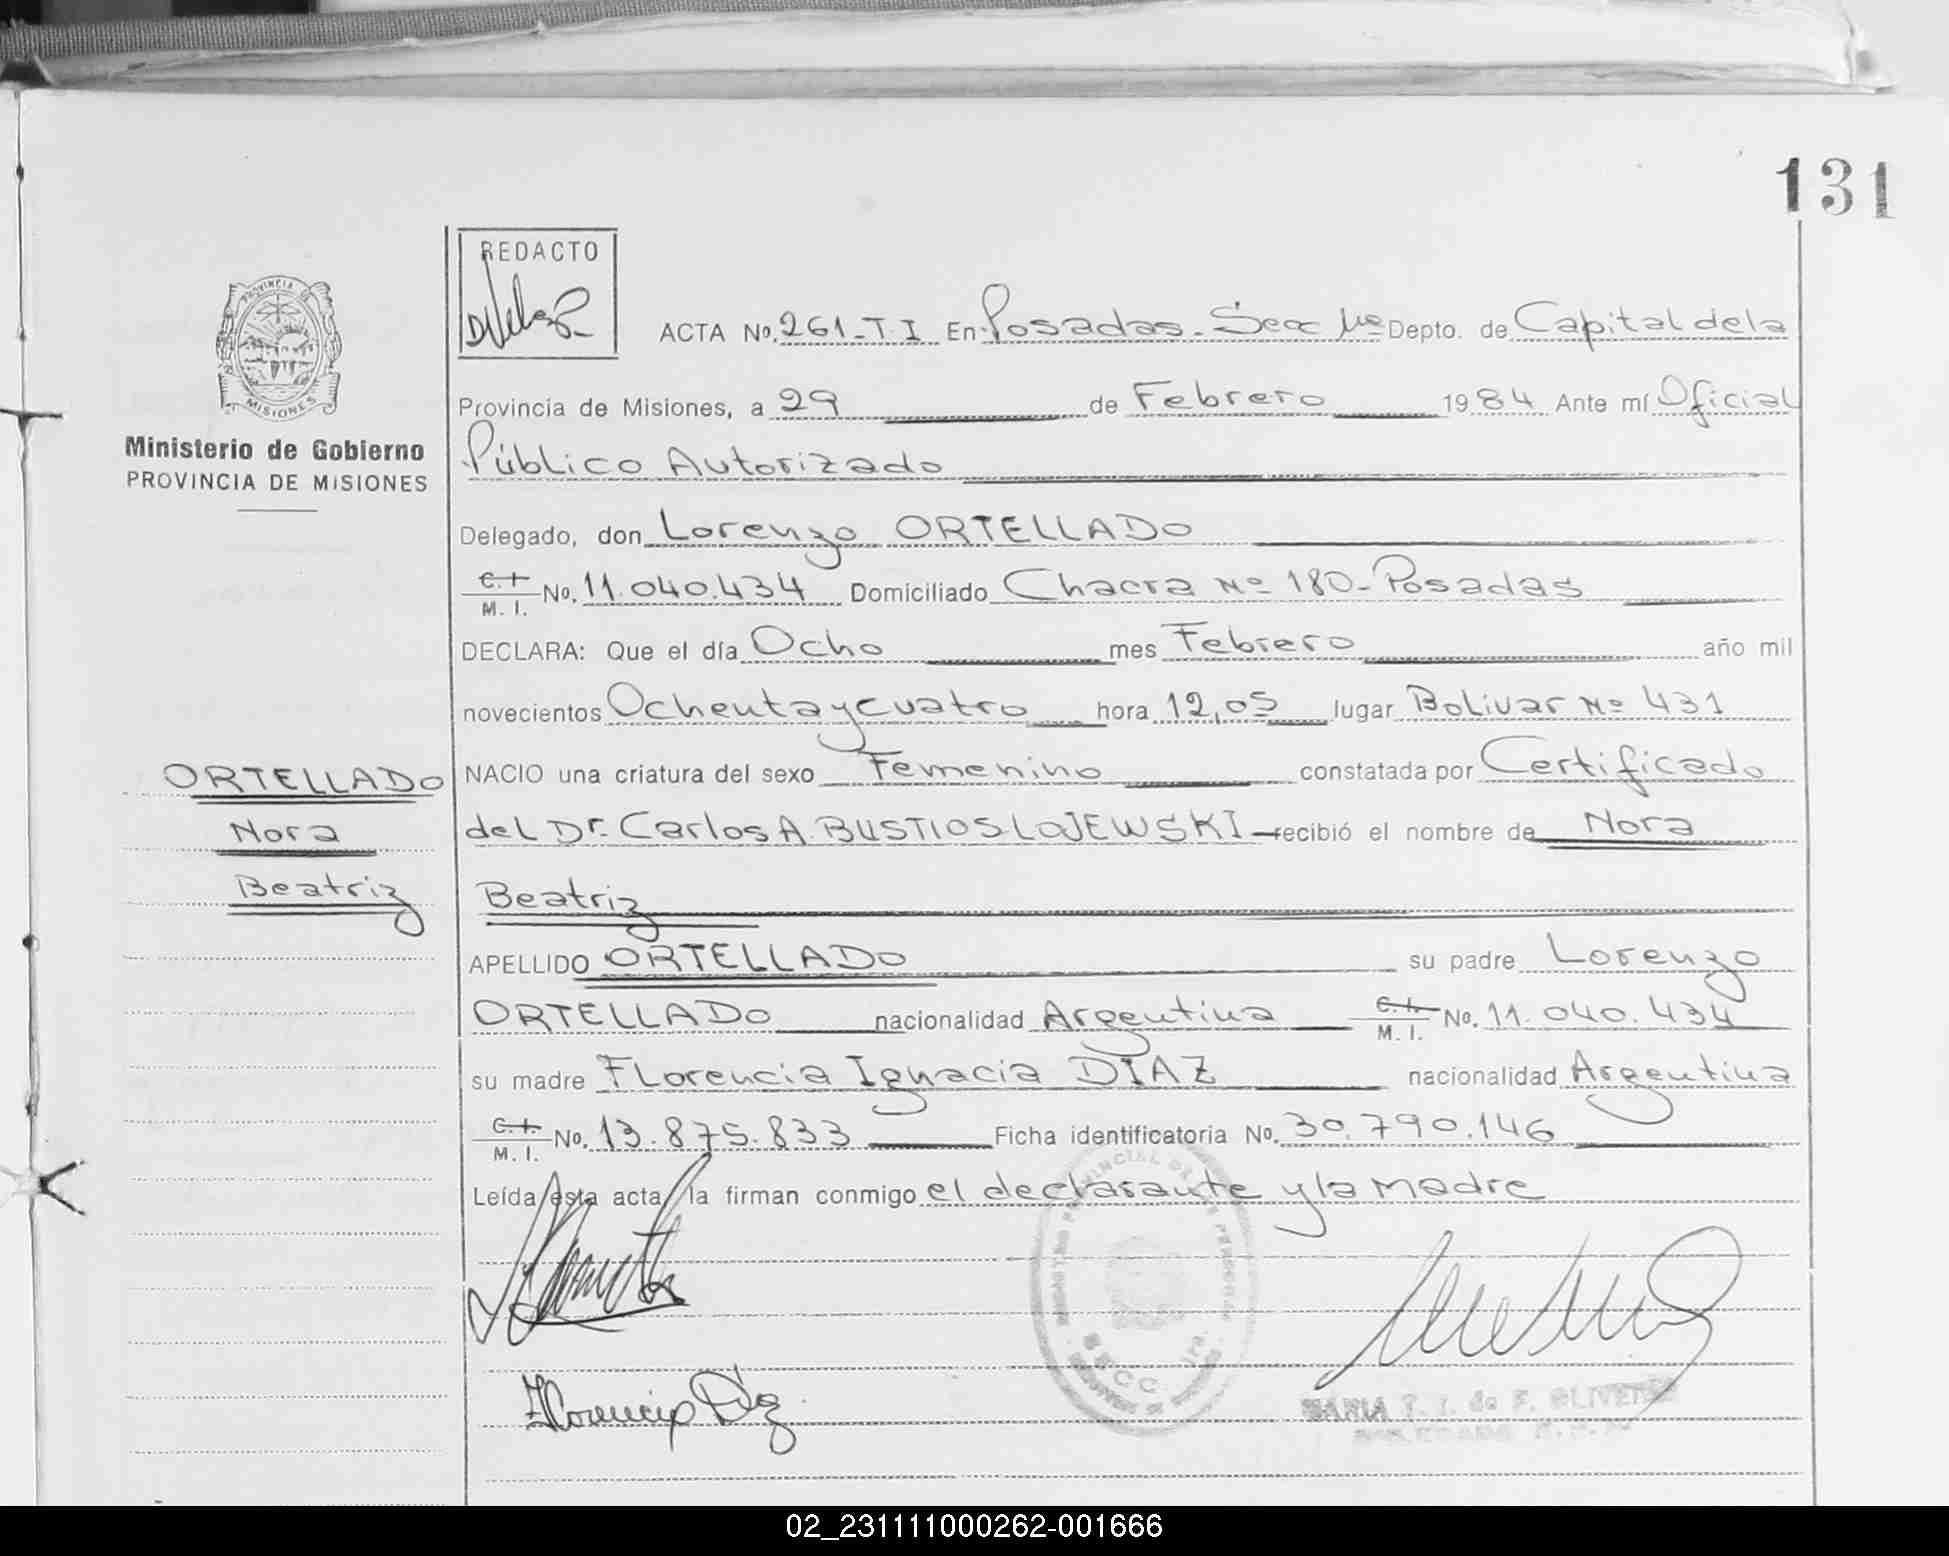 131
REDACTO
ACTA No. 261-T.I En Posadas - Secc 1ra Depto. de Capital dela
Provincia de Misiones, a 29 de Febrero 1984 Ante mí Oficial
Ministerio de Gobierno
PROVINCIA DE MISIONES
Público Autorizado
Delegado, don Lorenzo ORTELLADO
C.I. M. I. No. 11.040.434 Domiciliado Chacra Nº 180-Posadas
DECLARA: Que el día Ocho mes Febrero año mil
novecientos Ochentaycuatro hora 12,05 lugar Bolivar Nº 431
ORTELLADO
Nora
Beatriz
NACIO una criatura del sexo Femenino constatada por Certificado
del Dr. Carlos A. BUSTIOS LOJEWSKI recibió el nombre de Nora
Beatriz
APELLIDO ORTELLADO su padre Lorenzo
ORTELLADO nacionalidad Argentina C.I. M. I. No. 11.040.434
su madre FLorencia Ignacia DIAZ nacionalidad Argentina
C.I. M. I. No. 13.875.833 Ficha identificatoria No. 30.790.146
Leída esta acta la firman conmigo el declarante y la madre
Florencia Díaz
02_231111000262-001666